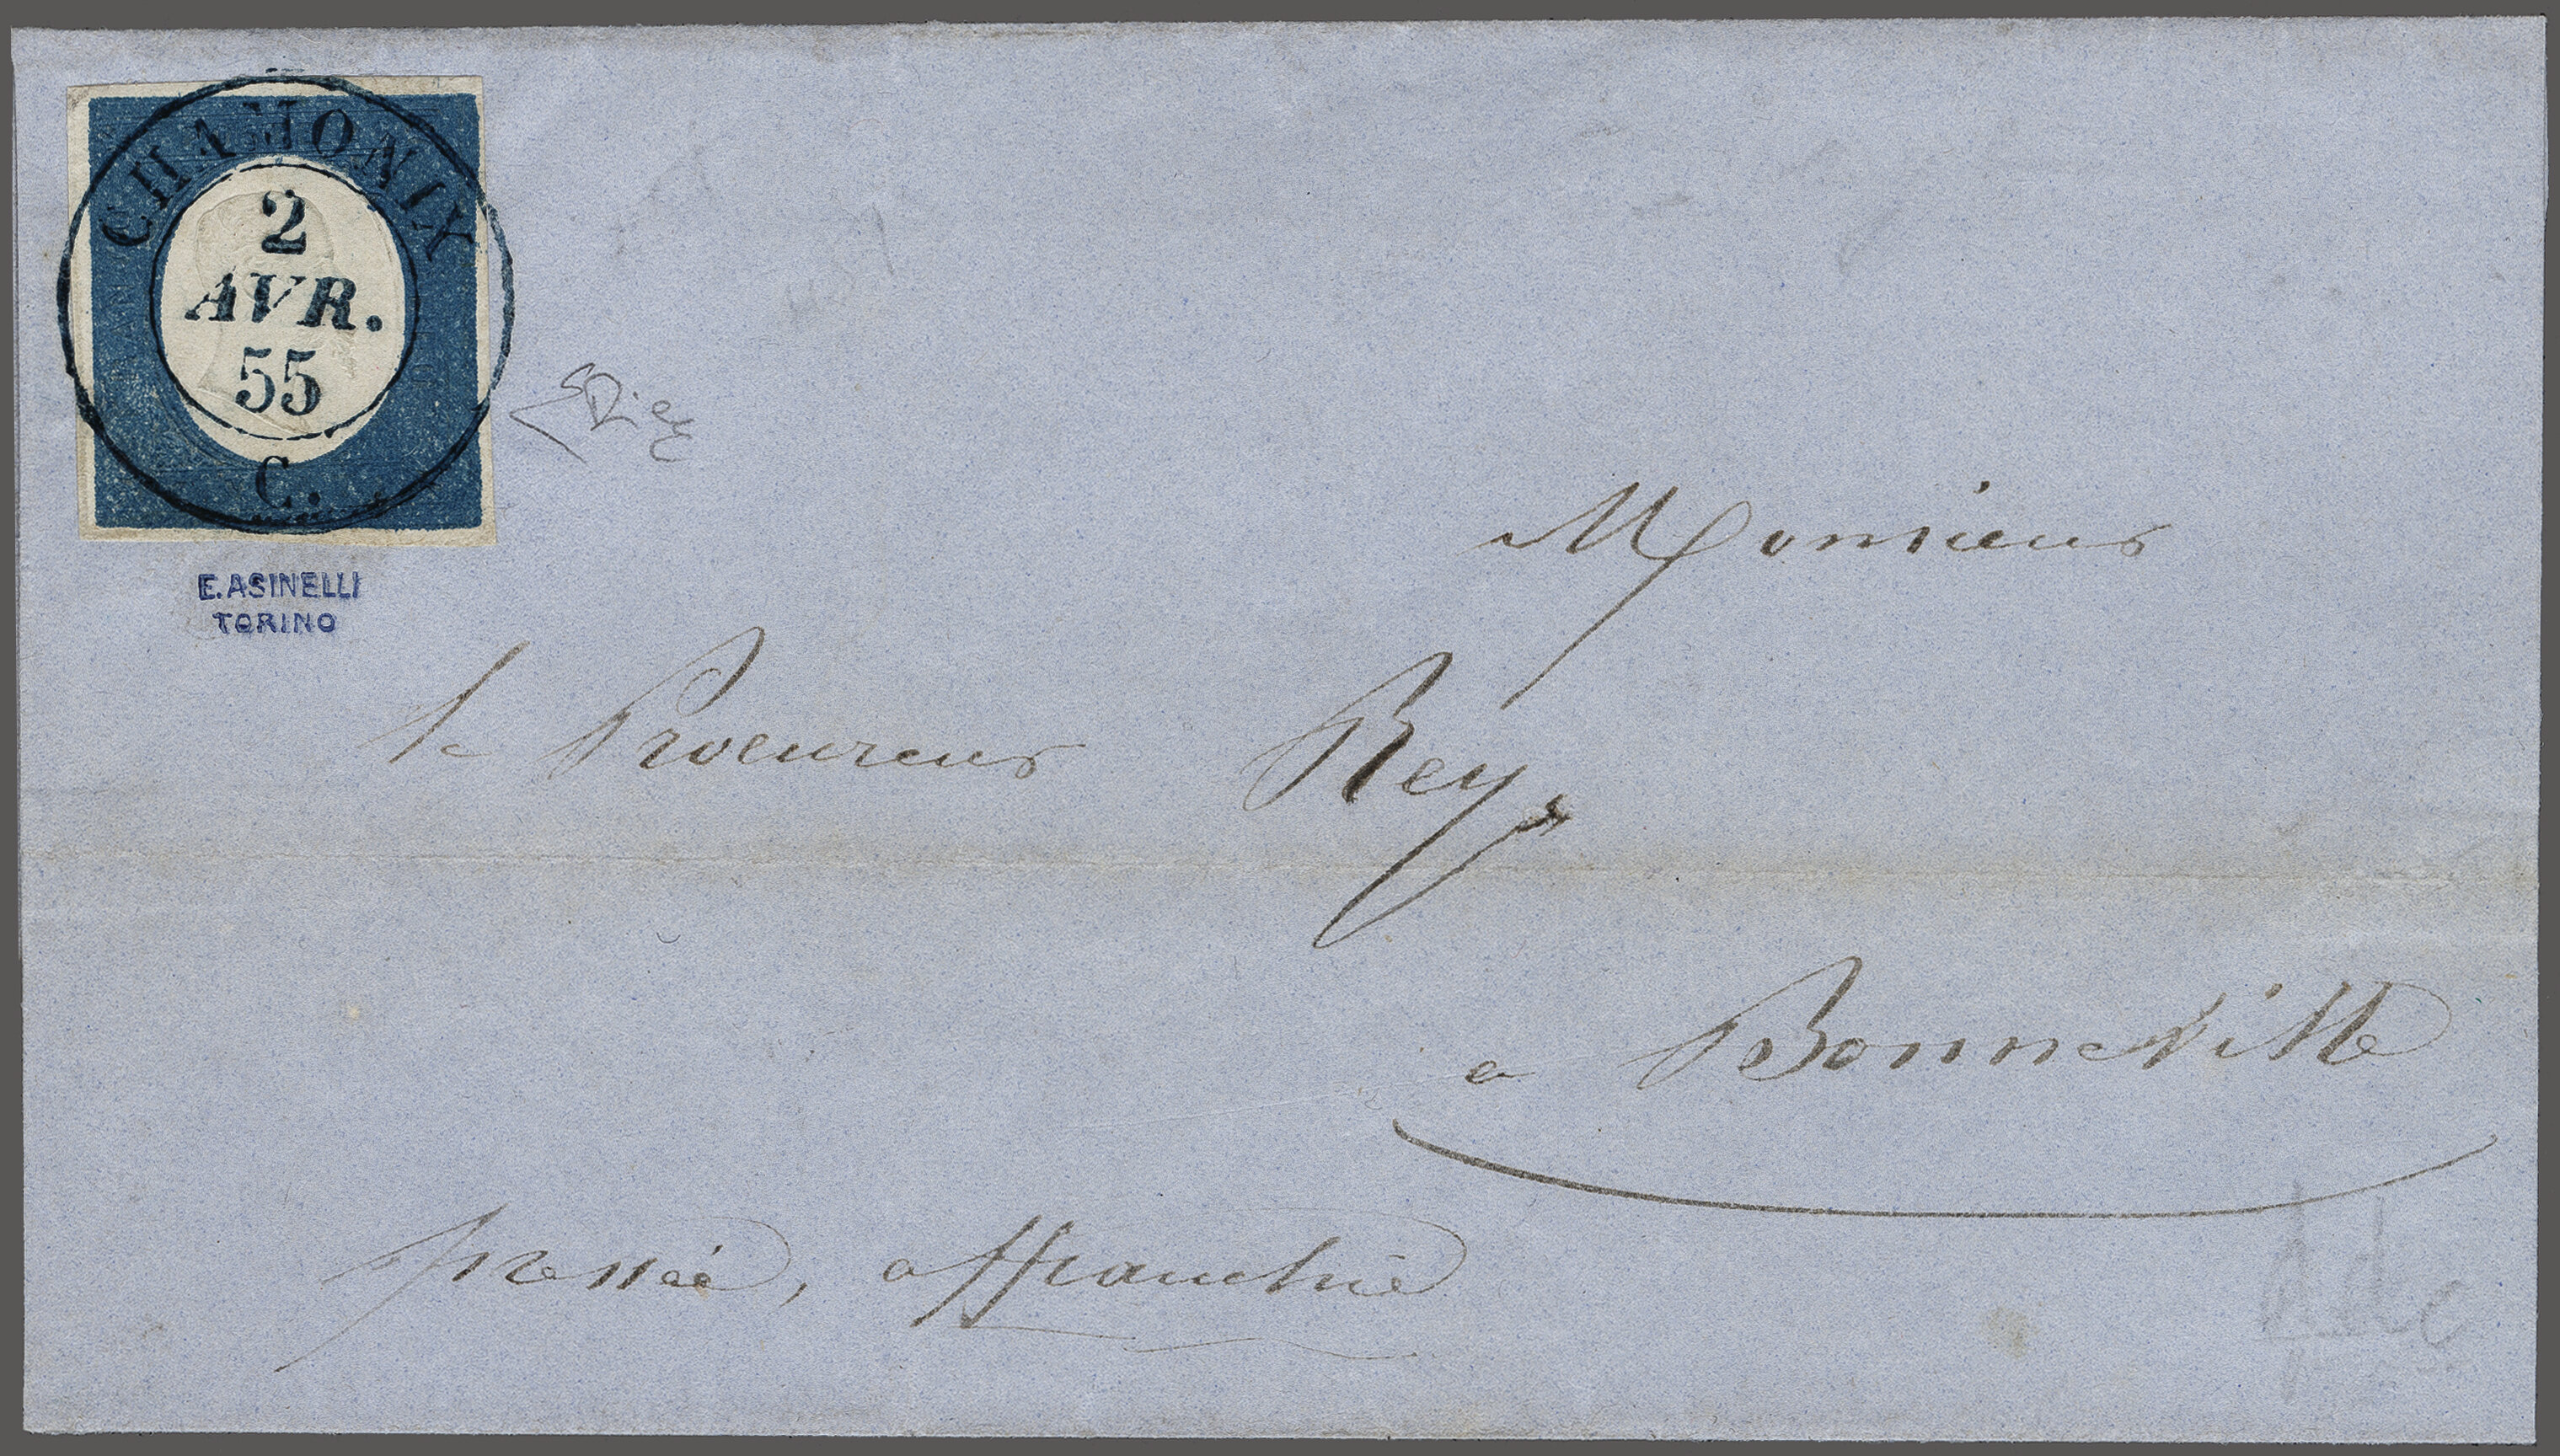 CHAMONIX
2
AVR.
55
C.
E. ASINELLI
TORINO
Monsieur
le Procureur Rey,
a Bonneville
pressée, affranchie